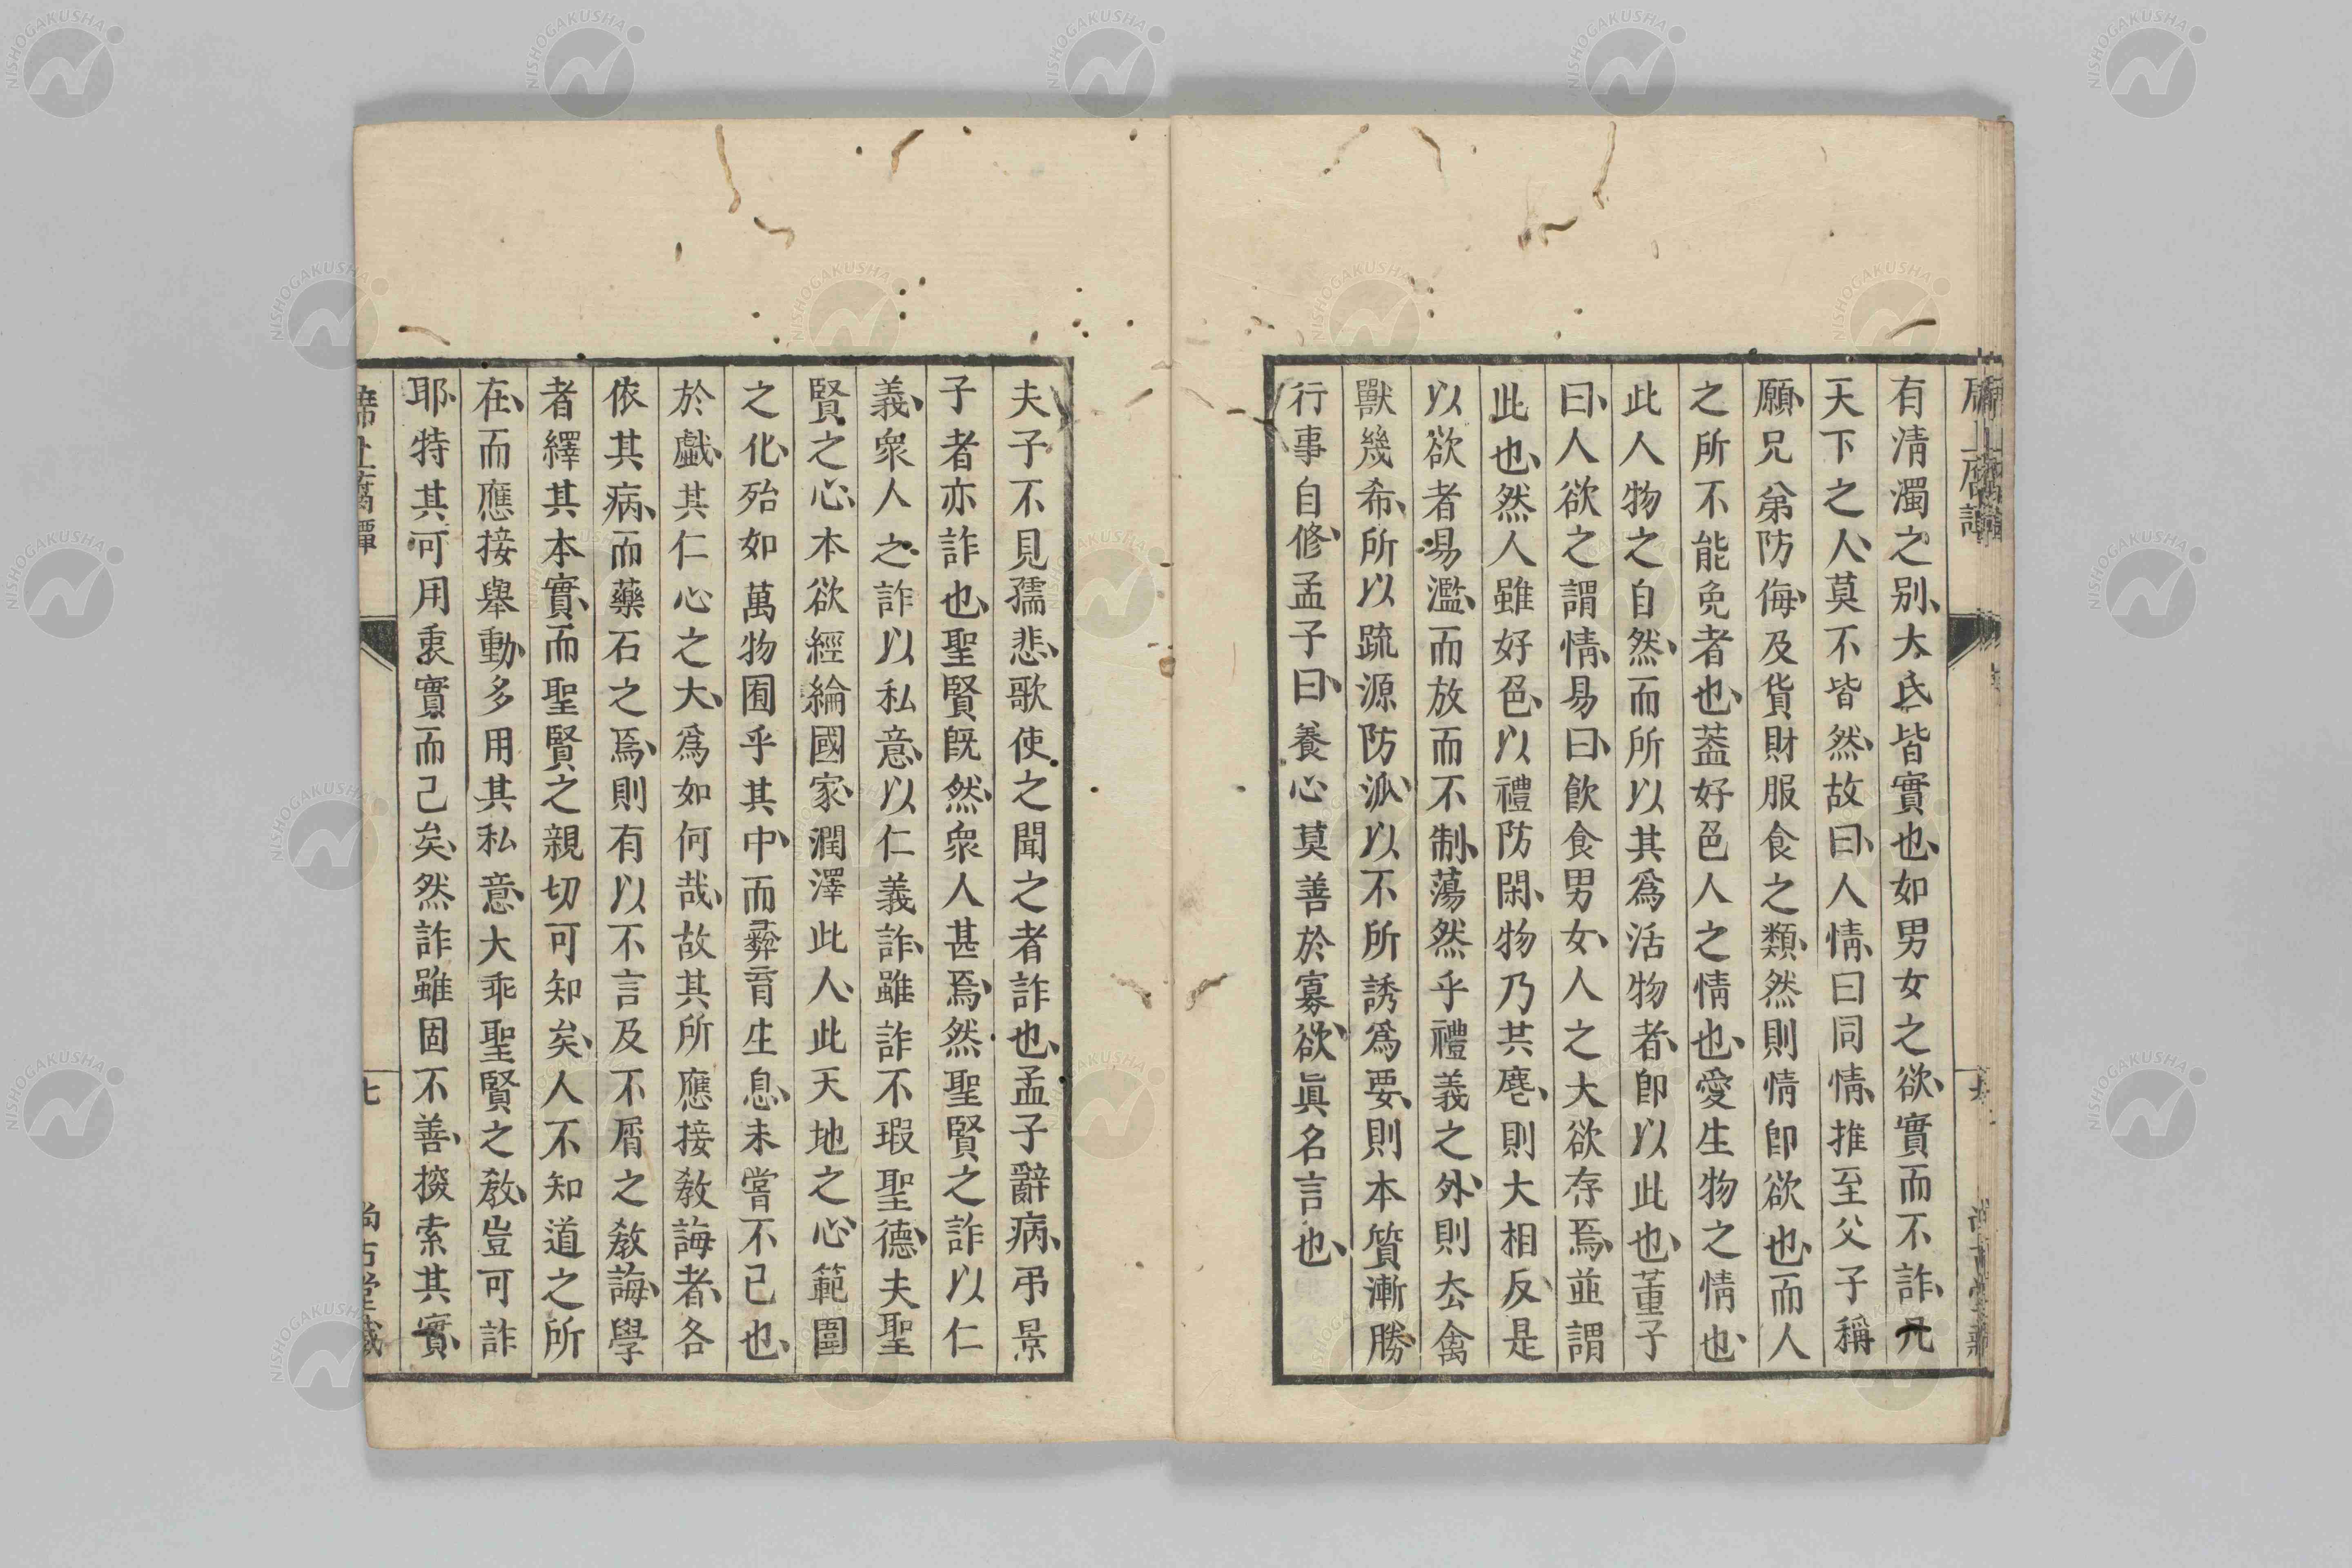 有淸濁之别、大氐皆實也、如男女之欲、實而不詐、凡
天下之人、莫不皆然、故曰、人情、曰同情、推至父子稱
願、兄弟防侮、及貨財服食之類、然則情卽欲也、而人
之所不能免者也、蓋好色人之情也、愛生物之情也、
此人物之自然、而所以其爲活物者、卽以此也、董子
曰、人欲之謂情、易曰、飮食男女、人之大欲存焉、並謂
此也、然人雖好色、以禮防閑、物乃共麀、則大相反、是
以欲者易濫、而放而不制、蕩然乎禮義之外、則厺禽
獸幾希、所以疏源防泒、以不所誘爲要、則本質漸勝、
行事自修、孟子曰、養心莫善於寡欲、眞名言也、
夫子不見孺悲、歌使之聞之者詐也、孟子辭病、弔景
子者亦詐也、聖賢旣然、衆人甚焉、然聖賢之詐以仁
義、衆人之詐以私意、以仁義詐、雖詐不瑕聖德、夫聖
賢之心、本欲經綸國家、潤澤此人、此天地之心、範圍
之化、殆如萬物囿乎其中、而彝育生息、未嘗不已也、
於戲、其仁心之大、爲如何哉、故其所應接敎誨者、各
依其病、而藥石之焉、則有以不言及不屑之敎誨、學
者繹其本實、而聖賢之親切可知矣、人不知道之所
在、而應接舉動、多用其私意、大乖聖賢之敎、豈可詐
耶、特其可用衷實而已矣、然詐雖固不善、㨷索其實、
七
尚古堂藏